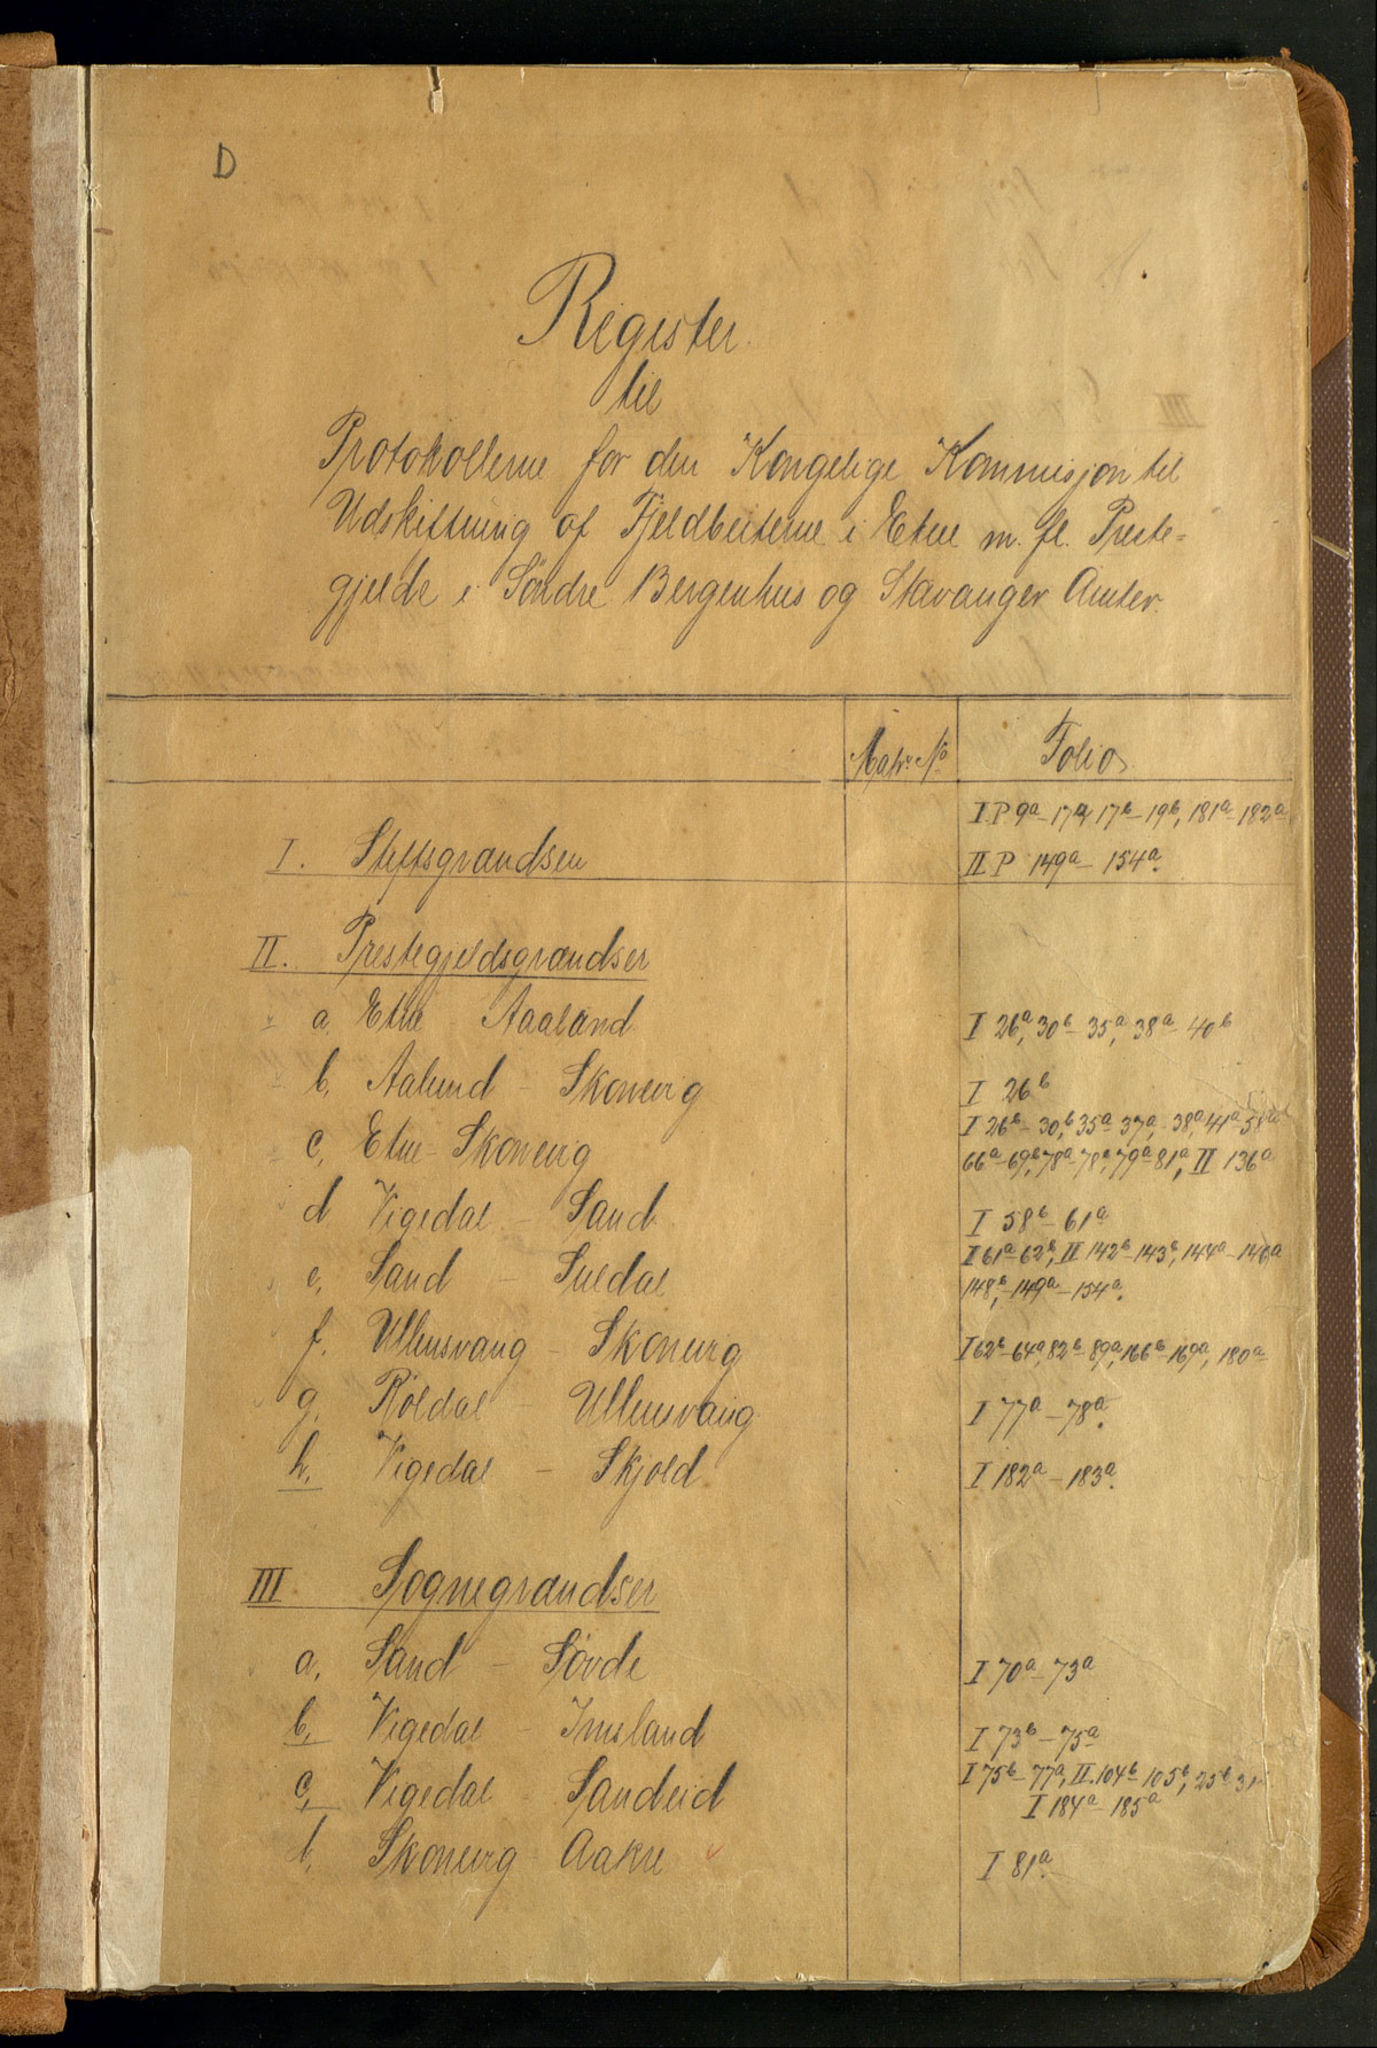 D
Register
til
Protokollerne for den Kongelige Kommisjon til
Udskiftning af Fjeldbeiterne i Etne m. fl. Preste-
gjelde i Söndre Bergenhus og Stavanger Amter.
Matr. No Folio
I P 9a - 17a, 17b - 19b, 181a - 182a
I. Stiftsgrændsen II P 149a - 154a.
II. Prestegjeldsgrændser
a, Etne - Aaland I 26a, 30b - 35a, 38a - 40b
b, Aalund - Skonevig I 26b
I 26b - 30b, 35a - 37a, 38a, 41a - 58a
c, Etne - Skonevig 66a - 69b, 78a - 78a, 79a - 81a, II 136a
d Vigedal - Sand I 58b - 61a
I 61a - 62b, II 142b - 143b, 144a - 146a
e, Sand - Suldal 148b, 149a - 154a.
f. Ullensvang - Skonevig I 62b - 64a, 82b - 89a, 166b - 169a, 180a
g, Röldal - Ullensvang I 77a - 78a.
h, Vigedal - Skjold I 182a - 183a.
III Sognegrændser
a, Sand - Sövde I 70a - 73a
b, Vigedal - Imsland I 73b - 75a
c, Vigedal - Sandeid I 75b - 77a, II. 104b - 105b, 25b - 31
I 184a - 185a
d, Skonevig - Aakre I 81a.